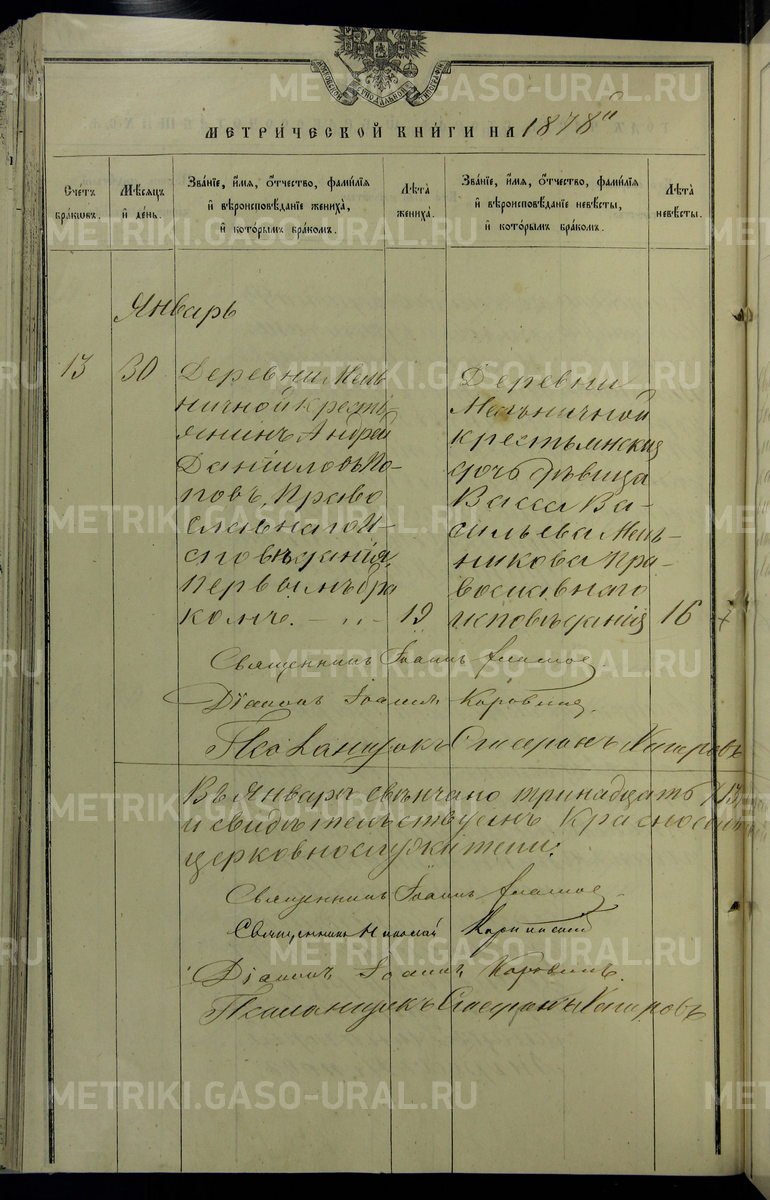 МЕТРИЧЕСКОЙ КНИГИ НА 1878й
Счетъ браковъ.
Мѣсяцъ и день.
Званіе, имя, отчество, фамилія и вѣроисповѣданіе жениха, и которымъ бракомъ.
Лѣта жениха.
Званіе, имя, отчество, фамилія и вѣроисповѣданіе невѣсты, и которымъ бракомъ.
Лѣта невѣсты.
Январь
13
30
Деревни Мель
ничной кресть
янинъ Андрей
Даніиловъ По-
повъ, Право
славнаго И-
сповѣданія,
первымъ бра
комъ.
19
Деревни
Мельничной
крестьянская
дочь дѣвица
Васса Ва-
сильева Мель-
никова Пра-
вославнаго
исповѣданія
16
Священникъ Іоаннъ
Діаконъ Іоаннъ Коровинъ.
Псаломщикъ Стефанъ
Въ Январѣ свѣнчано тринадцать 13
и свидѣтельствуемъ
церковнослужители:
Священникъ Іоаннъ
Священникъ Николай
Діаконъ Іоаннъ Коровинъ.
Псаломщикъ Стефанъ
METRIKI.GASO-URAL.RU